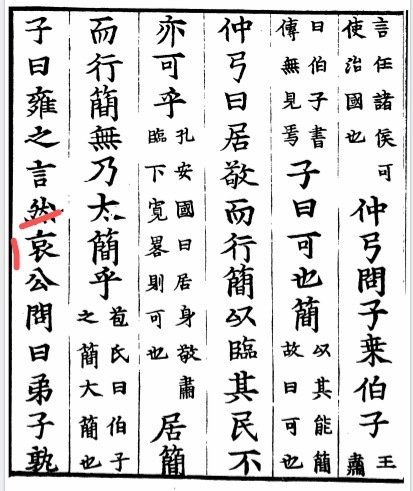 言任諸侯可使治國也仲弓問子桒伯子王肅
曰伯子書傳無見焉子曰可也簡以其能簡故曰可也
仲弓曰居敬而行簡以臨其民不
亦可乎孔安國曰居身敬肅臨下寛畧則可也居簡
而行簡無乃太簡乎苞氏曰伯子之簡大簡也
子曰雍之言然哀公問曰弟子孰